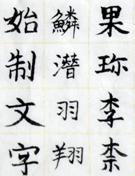 果珎李柰
鱗潛羽翔
始制文字